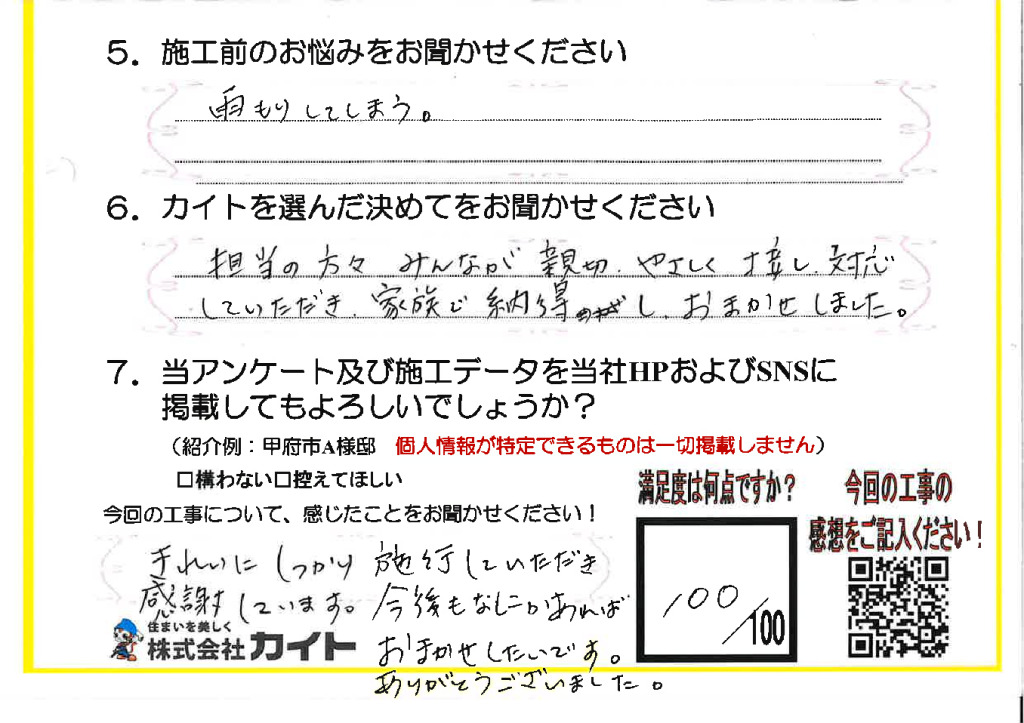 5．施工前のお悩みをお聞かせください
雨もりしてしまう。
6．カイトを選んだ決めてをお聞かせください
担当の方々 みんなが 親切、やさしく 接し、対応
していただき、家族で 納得 し、おまかせしました。
7．当アンケート及び施工データを当社HPおよびSNSに
掲載してもよろしいでしょうか？
（紹介例：甲府市A様邸　個人情報が特定できるものは一切掲載しません）
□構わない□控えてほしい
今回の工事について、感じたことをお聞かせください！
きれいに しっかり 施行していただき
感謝しています。今後もなにかあれば
おまかせしたいです。
ありがとうございました。
満足度は何点ですか？
100/100
今回の工事の
感想をご記入ください！
住まいを美しく
株式会社カイト